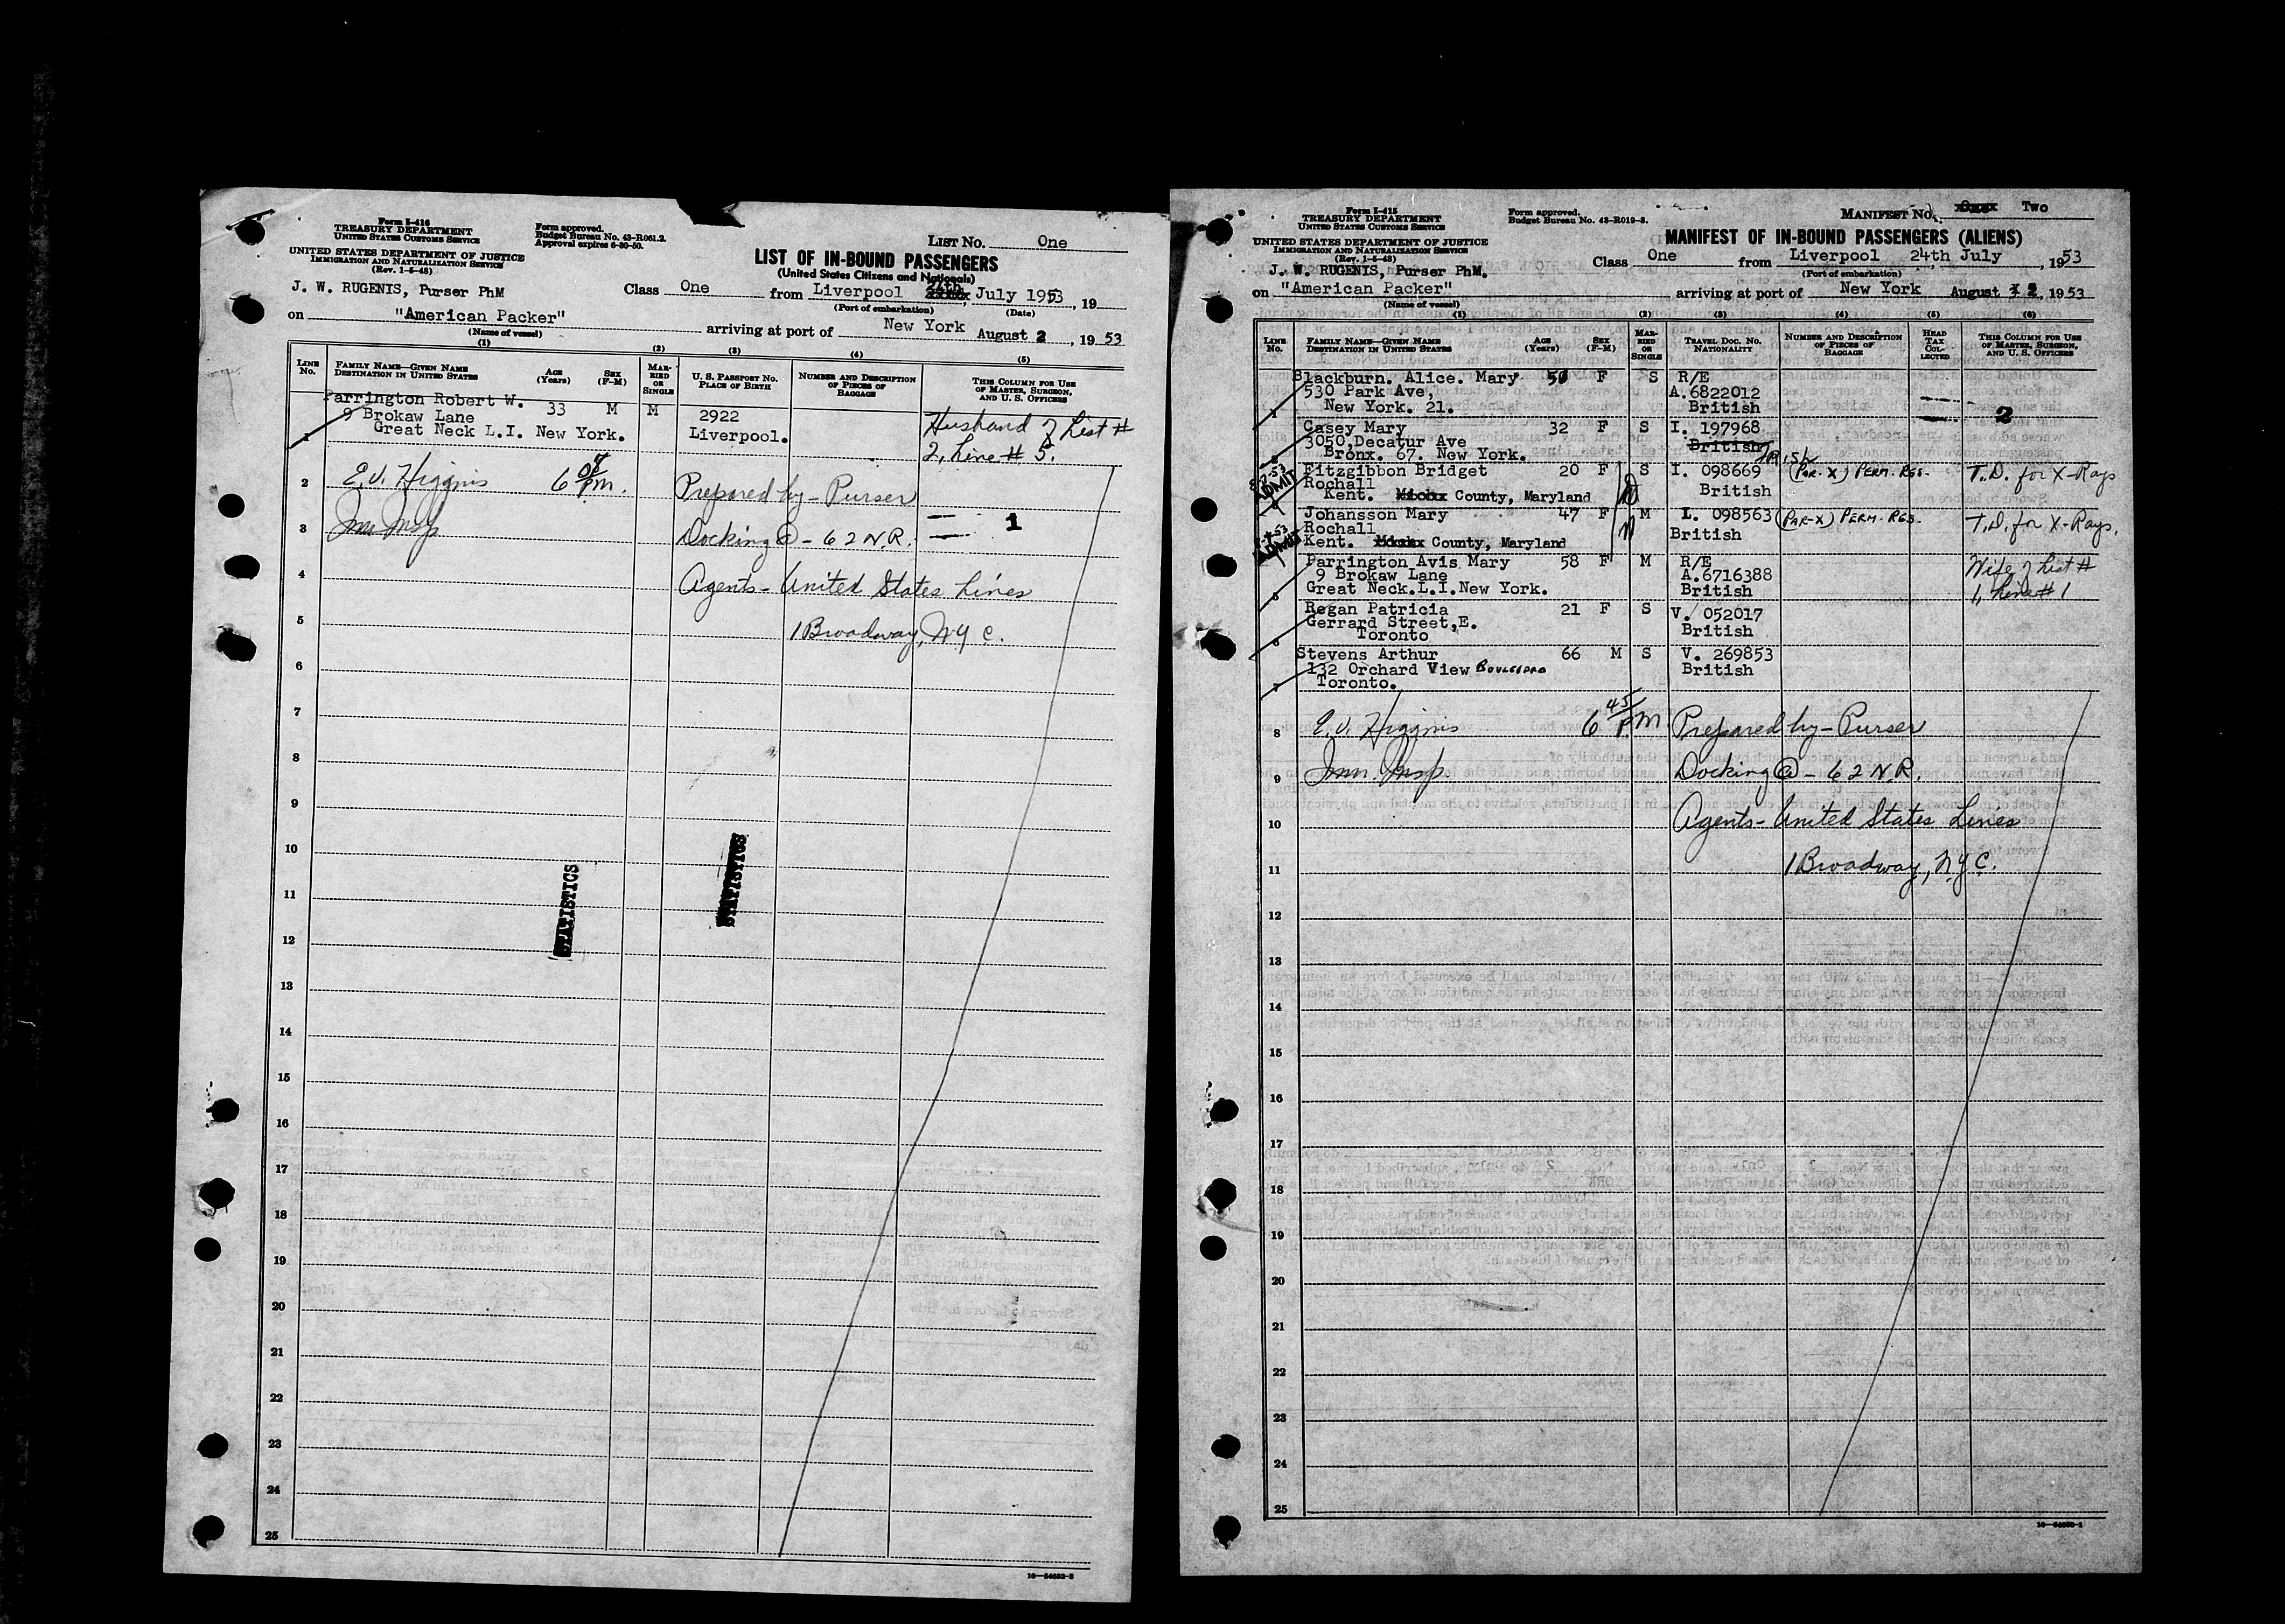 Form I-416
TREASURY DEPARTMENT
UNITED STATES CUSTOMS SERVICE
UNITED STATES DEPARTMENT OF JUSTICE
IMMIGRATION AND NATURALIZATION SERVICE
(Rev. 1-5-48)
Form approved.
Budget Bureau No. 43-R061.2.
Approval expires 6-30-50.
LIST No. One
LIST OF IN-BOUND PASSENGERS
(United States Citizens and Nationals)
J. W. RUGENIS, Purser PhM
Class One from Liverpool 24th July 1953, 19
(Port of embarkation) (Date)
on "American Packer" arriving at port of New York August 2, 1953
(Name of vessel)
(1) (2) (3) (4) (5)
LINE No.
FAMILY NAME—GIVEN NAME
DESTINATION IN UNITED STATES
AGE (Years)
SEX (F-M)
MARRIED OR SINGLE
U. S. PASSPORT NO.
PLACE OF BIRTH
NUMBER AND DESCRIPTION OF PIECES OF BAGGAGE
THIS COLUMN FOR USE OF MASTER, SURGEON, AND U. S. OFFICERS
Parrington Robert W. 33 M M 2922
9 Brokaw Lane Liverpool.
Great Neck L.I. New York.
Husband of List #
2, Line # 5.
1
2 E.V. Higgins 6 05 P.M. Prepared by - Purser
3 Imm Insp Docking @ - 62 N.R. 1
4 Agents - United States Lines
5 1 Broadway, N.Y.C.
6
7
8
9
10
11
12
13
14
15
16
17
18
19
20
21
22
23
24
25
STATISTICS
STATISTICS
Form I-415
TREASURY DEPARTMENT
UNITED STATES CUSTOMS SERVICE
UNITED STATES DEPARTMENT OF JUSTICE
IMMIGRATION AND NATURALIZATION SERVICE
(Rev. 1-5-48)
Form approved.
Budget Bureau No. 43-R019-3.
MANIFEST No. Two
MANIFEST OF IN-BOUND PASSENGERS (ALIENS)
J. W. RUGENIS, Purser PhM.
Class One from Liverpool 24th July, 1953
(Port of embarkation)
on "American Packer" arriving at port of New York August 2, 1953
(Name of vessel)
(1) (2) (3) (4) (5) (6)
LINE No.
FAMILY NAME—GIVEN NAME
DESTINATION IN UNITED STATES
AGE (Years)
SEX (F-M)
MARRIED OR SINGLE
TRAVEL DOC. NO.
NATIONALITY
NUMBER AND DESCRIPTION OF PIECES OF BAGGAGE
HEAD TAX COLLECTED
THIS COLUMN FOR USE OF MASTER, SURGEON, AND U. S. OFFICERS
Blackburn. Alice. Mary 50 F S R/E
530 Park Ave, A.6822012
1 New York. 21. British 2
Casey Mary 32 F S I. 197968
3050 Decatur Ave British
Bronx. 67. New York. IRISH
ADMIT
Fitzgibbon Bridget 20 F S I. 098669 (PAR-X) PERM. RES. T.D. for X-Rays
Rochall British
Kent. County, Maryland
ADMIT
Johansson Mary 47 F M I. 098563 (PAR-X) PERM. RES. T.D. for X-Rays.
Rochall British
Kent. County, Maryland
Parrington Avis Mary 58 F M R/E Wife of List #
9 Brokaw Lane A.6716388 1, Line # 1
Great Neck.L.I.New York. British
Regan Patricia 21 F S V. 052017
Gerrard Street,E. British
6 Toronto
Stevens Arthur 66 M S V. 269853
132 Orchard View BOULEVARD British
7 Toronto.
8 E.V. Higgins 6 45 P.M. Prepared by - Purser
9 Imm. Insp Docking @ - 62 N.R.
10 Agents - United States Lines
11 1 Broadway, N.Y.C.
12
13
14
15
16
17
18
19
20
21
22
23
24
25